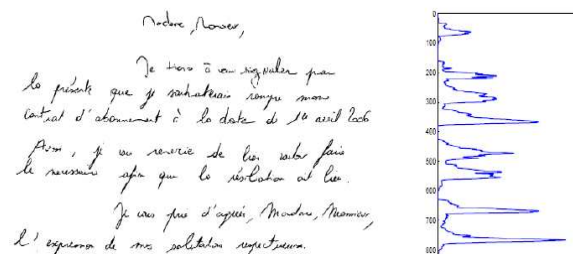 Madame, Monsieur,
Je tiens à vous signaler par
la présente que je souhaiterais rompre mon
contrat d'abonnement à la date de 14 avril 2006
Aussi, je vous remercie de bien vouloir faire
le nécessaire afin que la résiliation ait lieu.
Je vous prie d'agréer, Madame, Monsieur,
l'expression de mes salutations respectueuses.
0
100
200
300
400
500
600
700
800